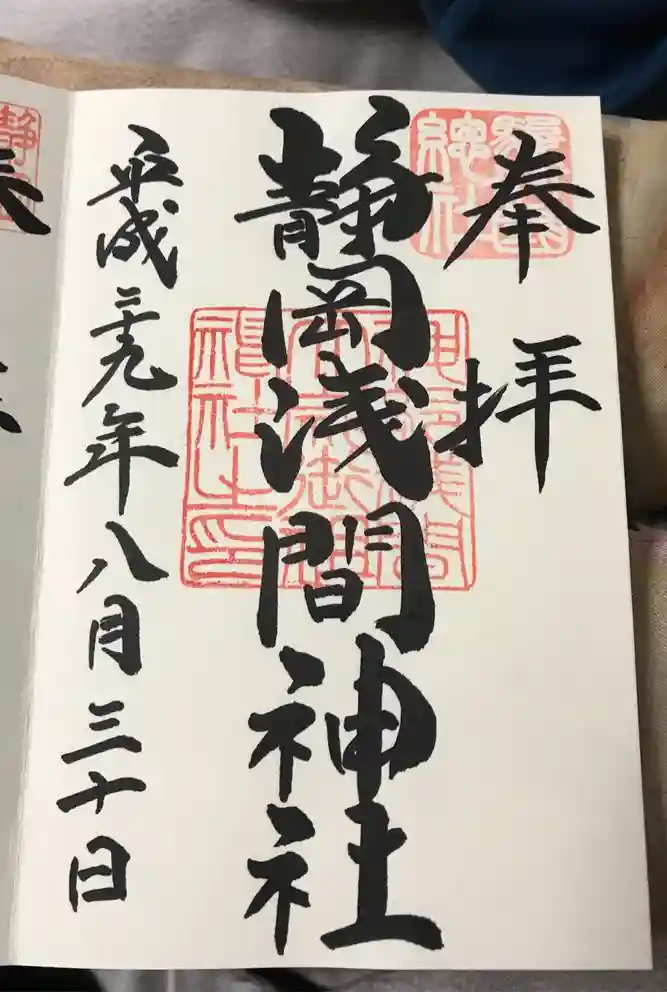 奉拝
静岡浅間神社
平成二十九年八月三十日